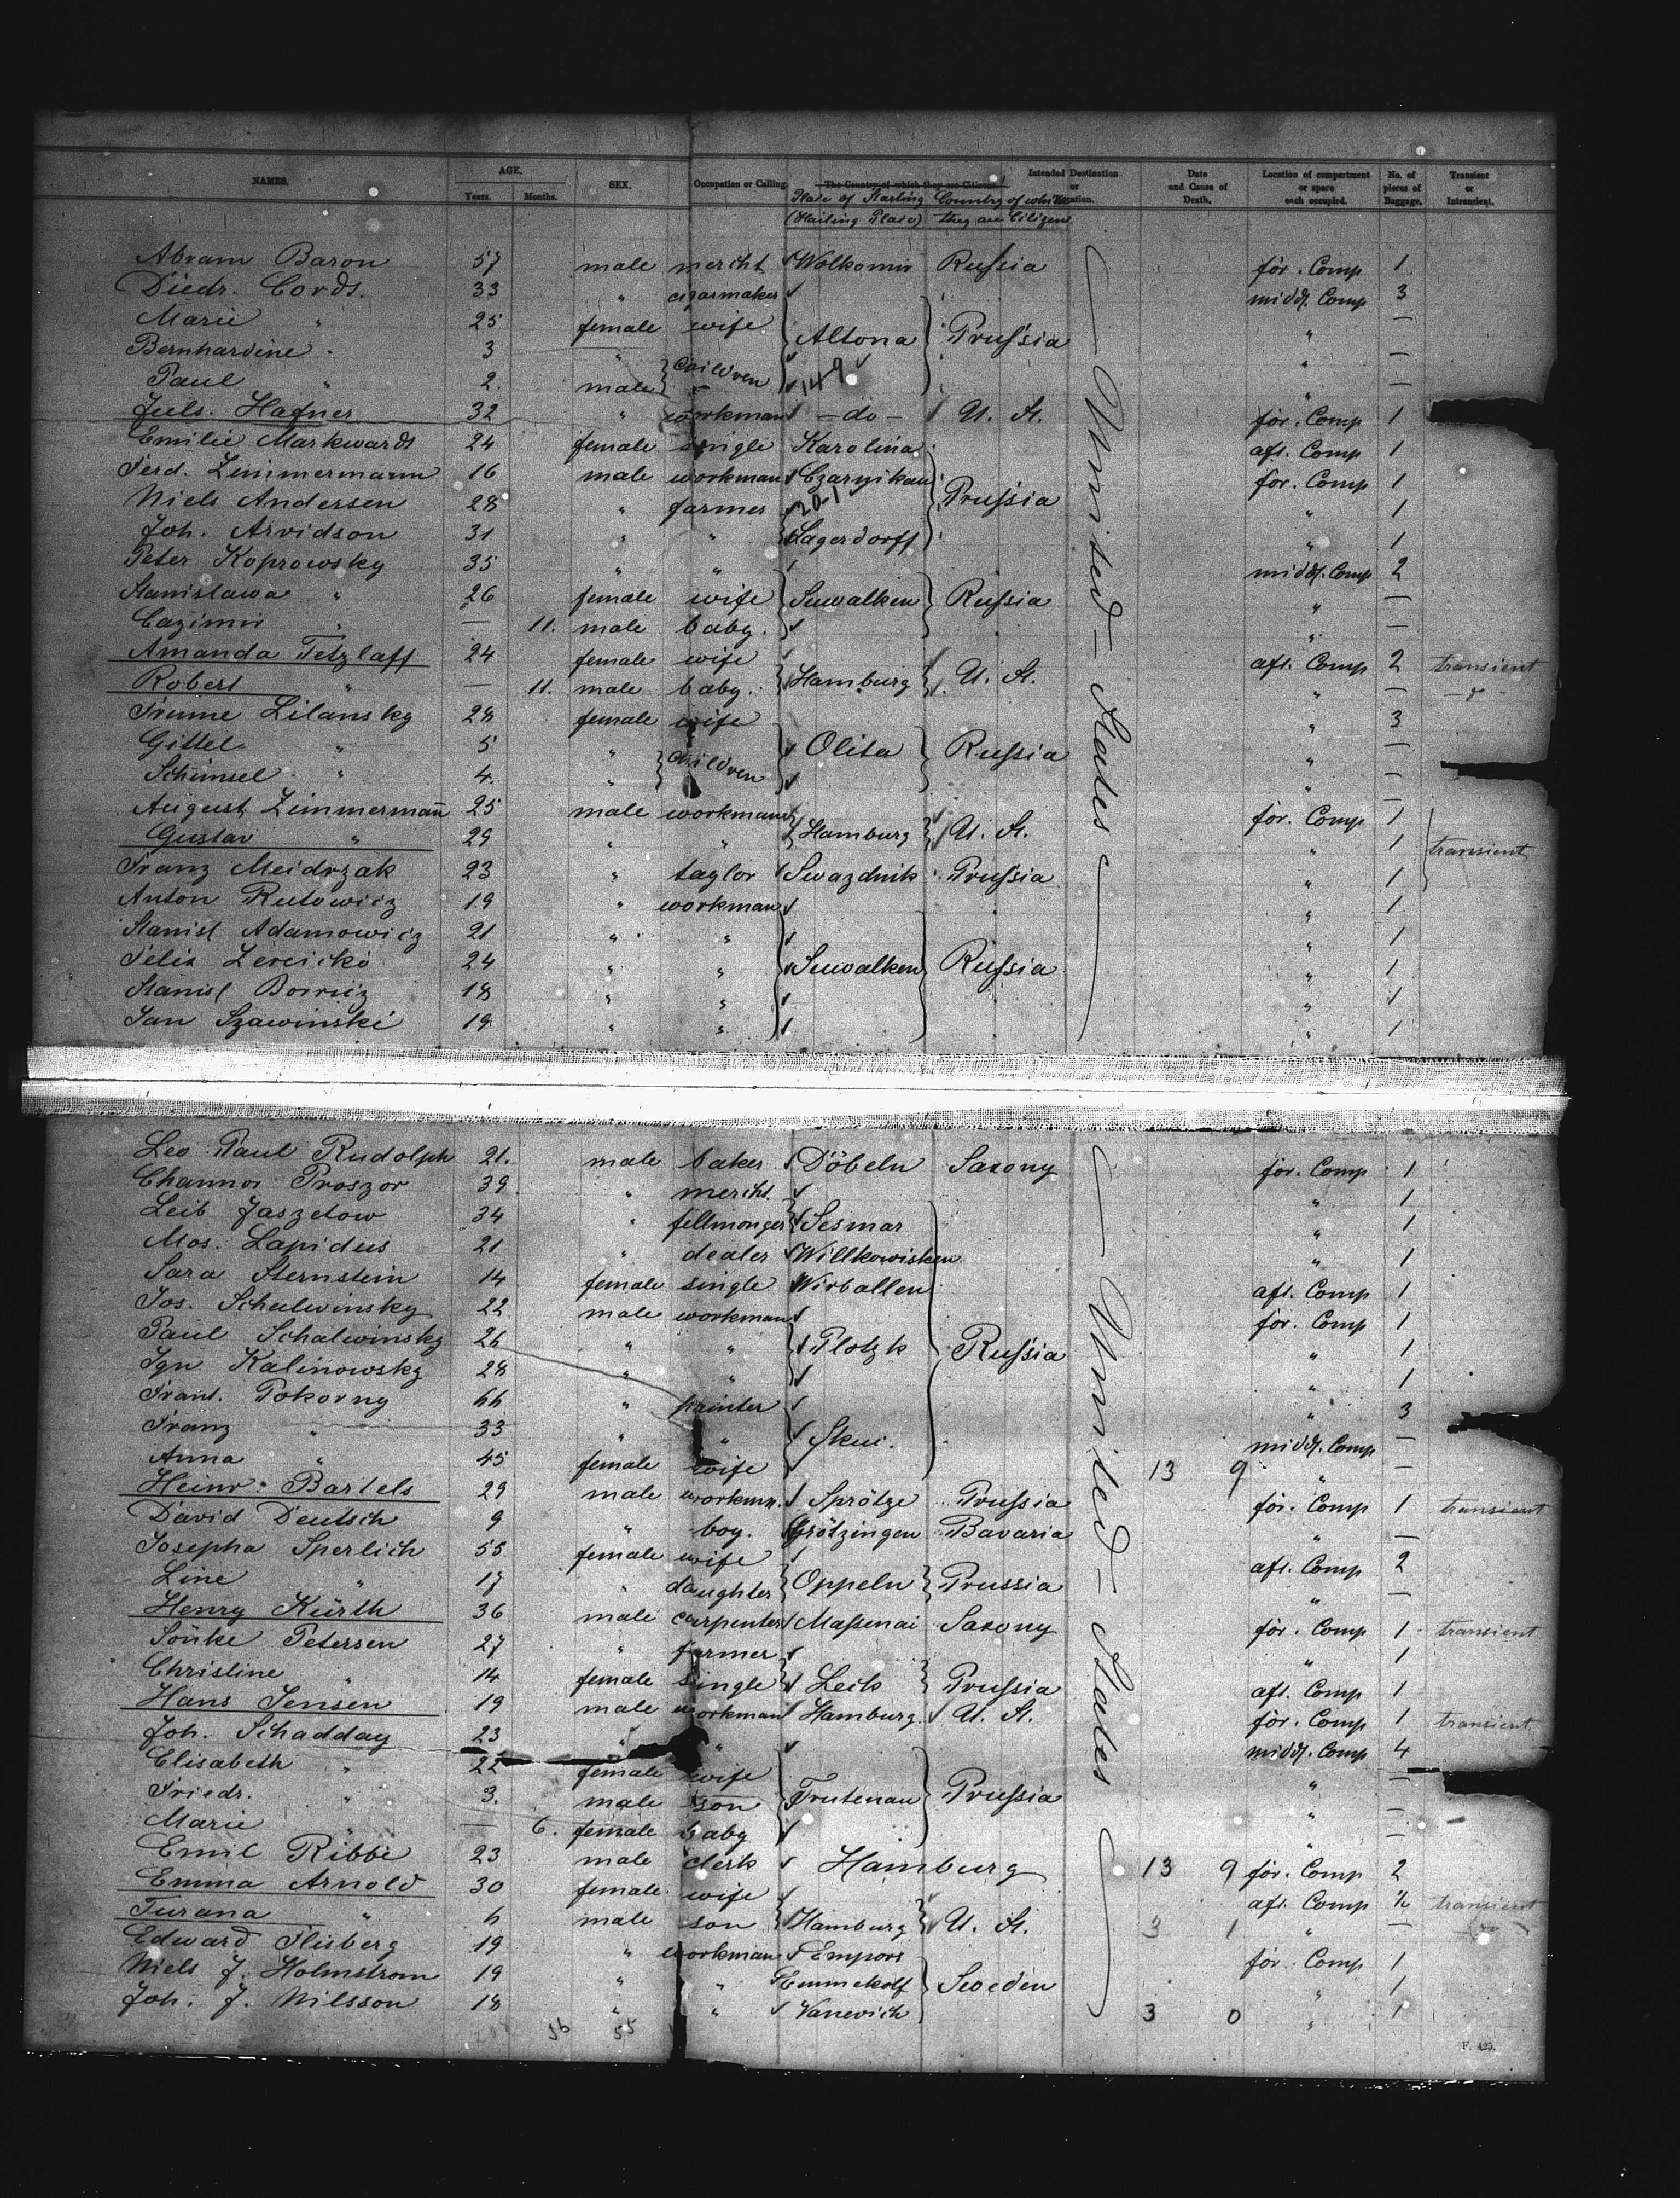 NAMES. AGE. Years. Months. SEX. Occupation or Calling. The Country of which they are Citizens. Intended Destination or Location. Date and Cause of Death. Location of compartment or space each occupied. No. of pieces of Baggage. Transient or Intransient.
Place of Starting Country of which
(Hailing Place) they are Citizens
Abram Baron 57 male mercht Wolkomir Russia for. Comp 1
Diedr. Cords. 33 " cigarmaker middl. Comp 3
Marie " 25 female wife Altona Prussia " —
Bernhardine " 3 " Children " —
Paul " 2. male 149 " —
Juls. Hafner 32 " workman — do — U. St. for. Comp 1
Emilie Markwardt 24 female single Karolina aft. Comp 1
Ferd. Zimmermann 16 male workman Czarnikau Prussia for. Comp 1
Niels Andersen 28 " farmer 201 " 1
Joh. Arvidson 31 " " Lagerdorff " 1
Peter Koprowsky 35 " " middl. Comp 2
Stanislawa " 26 female wife Suwalken Russia " —
Cazimir " — 11. male baby. " —
Amanda Tetzlaff 24 female wife Hamburg U. St. aft. Comp 2 transient
Robert " — 11. male baby. " —
Frume Lilansky 28 female wife " 3
Gittel " 5 " Children Olita Russia " —
Schimsel " 4. " " —
August Zimmermann 25 male workman Hamburg U. St. for. Comp 1 transient
Gustav " 29 " " " 1
Franz Meidrzak 23 " taylor Swazdnik Prussia " 1
Anton Rutowicz 19 " workman " 1
Stanisl Adamowicz 21 " " " 1
Felix Zercicko 24 " " Suwalken Russia " 1
Stanisl Borricz 18 " " " 1
Jan Szawinski 19 " " " 1
United States
Leo Paul Rudolph 21. male baker Döbeln Saxony for. Comp 1
Channor Proszor 39 " mercht. " 1
Leib Jaszetow 34 " fellmonger Sesmar " 1
Mos. Lapidus 21 " dealer Willkowisken " 1
Sara Sternstein 14 female single Wirballen aft. Comp 1
Jos. Schalwinsky 22 male workman for. Comp 1
Paul Schalwinsky 26 " " Plotzk Russia " 1
Ign Kalinowsky 28 " " " 1
Frant. Pokorny 66 " painter " 3
Franz " 33 " " Skui. middl. Comp —
Anna " 45 female wife 13 9 " —
Heinr. Bartels 29 male workmn. Sprötze Prussia for. Comp 1 transient
David Deutsch 9 " boy. Grötzingen Bavaria " —
Josepha Sperlich 55 female wife Oppeln Prussia aft. Comp 2
Line " 17 " daughter " —
Henry Kürth 36 male carpenter Massenai Saxony for. Comp 1 transient
Sönke Petersen 27 " farmer " 1
Christine " 14 female single Leck Prussia aft. Comp 1
Hans Jensen 19 male workman Hamburg. U. St. for. Comp 1 transient
Joh. Schadday 23 " " middl. Comp 4
Elisabeth " 22 female wife " —
Friedr. " 3. male son Trutenau Prussia " —
Marie " — 6. female baby " —
Emil Ribbe 23 male clerk Hamburg 13 9 for. Comp 2
Emma Arnold 30 female wife aft. Comp transient
Turana " 6 male son Hamburg U. St. 3 1 " —
Edward Flisberg 19 " workman Empors for. Comp 1
Niels J. Holmstrom 19 " " Sweden " 1
Joh. J. Nilsson 18 " " Vanevich 3 0 " 1
United States
56 55
F. 425.